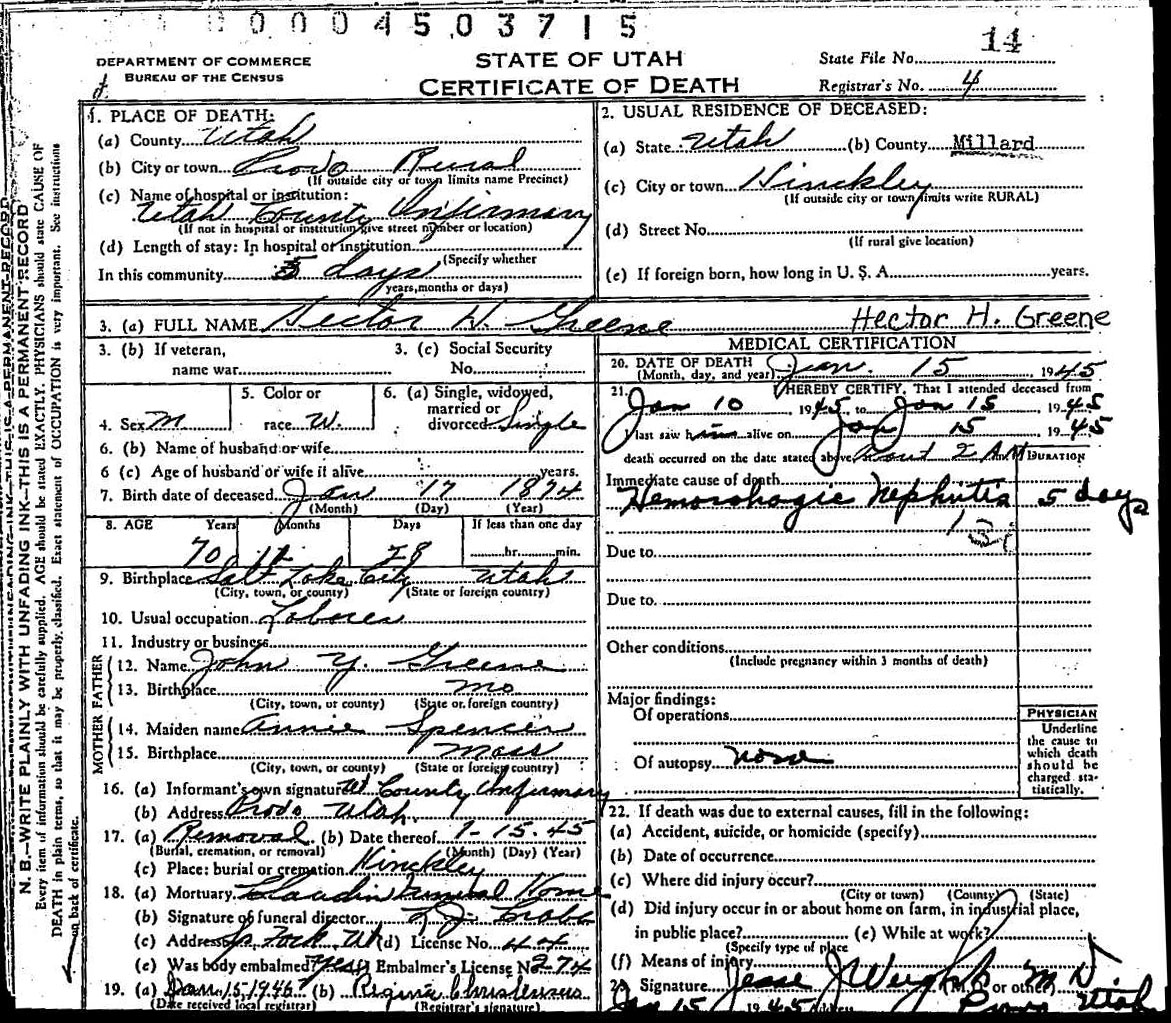 0004503715
14
DEPARTMENT OF COMMERCE
BUREAU OF THE CENSUS
STATE OF UTAH
CERTIFICATE OF DEATH
State File No.
Registrar's No. 4
N. B.—WRITE PLAINLY WITH UNFADING INK—THIS IS A PERMANENT RECORD
Every item of information should be carefully supplied. AGE should be stated EXACTLY. PHYSICIANS should state CAUSE OF
DEATH in plain terms, so that it may be properly classified. Exact statement of OCCUPATION is very important. See instructions
on back of certificate.
1. PLACE OF DEATH:
(a) County Utah
(b) City or town Provo Rural
(If outside city or town limits name Precinct)
(c) Name of hospital or institution:
Utah County Infirmary
(If not in hospital or institution give street number or location)
(d) Length of stay: In hospital or institution
(Specify whether
In this community 5 days
years, months or days)
2. USUAL RESIDENCE OF DECEASED:
(a) State Utah (b) County Millard
(c) City or town Hinckley
(If outside city or town limits write RURAL)
(d) Street No.
(If rural give location)
(e) If foreign born, how long in U. S. A. years.
3. (a) FULL NAME Hector H. Greene Hector H. Greene
3. (b) If veteran,
name war
3. (c) Social Security
No.
4. Sex M
5. Color or
race W.
6. (a) Single, widowed,
married or
divorced Single
6. (b) Name of husband or wife
6 (c) Age of husband or wife if alive years.
7. Birth date of deceased Jan 17 1874
(Month) (Day) (Year)
8. AGE Years Months Days If less than one day
70 11 28 hr. min.
9. Birthplace Salt Lake City Utah
(City, town, or county) (State or foreign country)
10. Usual occupation Laborer
11. Industry or business
FATHER
12. Name John Y. Greene
13. Birthplace Mo
(City, town, or county) (State or foreign country)
MOTHER
14. Maiden name Annie Spencer
15. Birthplace Mass
(City, town, or county) (State or foreign country)
16. (a) Informant's own signature Ut County Infirmary
(b) Address Provo Utah.
17. (a) Removal (b) Date thereof 1-15-45
(Burial, cremation, or removal) (Month) (Day) (Year)
(c) Place: burial or cremation Hinckley
18. (a) Mortuary Claudin Funeral Home
(b) Signature of funeral director
(c) Address Sp Fork Ut (d) License No. 44
(e) Was body embalmed? Yes Embalmer's License No 274
19. (a) Jan 15 1946 (b) Regina Christensen
(Date received local registrar) (Registrar's signature)
MEDICAL CERTIFICATION
20. DATE OF DEATH Jan. 15, 1945
(Month, day, and year)
21. I HEREBY CERTIFY, That I attended deceased from
Jan 10 1945 to Jan 15 1945
I last saw him alive on Jan 15 1945
death occurred on the date stated above, about 2 A M DURATION
Immediate cause of death
Hemorrhagic Nephritis 5 days
Due to
Due to
Other conditions
(Include pregnancy within 3 months of death)
Major findings:
Of operations
Of autopsy none
PHYSICIAN
Underline
the cause to
which death
should be
charged sta-
tistically.
22. If death was due to external causes, fill in the following:
(a) Accident, suicide, or homicide (specify)
(b) Date of occurrence
(c) Where did injury occur?
(City or town) (County) (State)
(d) Did injury occur in or about home on farm, in industrial place,
in public place? (e) While at work?
(Specify type of place
(f) Means of injury
23. Signature Jesse J Weight M D
(M.D. or other)
Jan 15 1945 Address Provo Utah